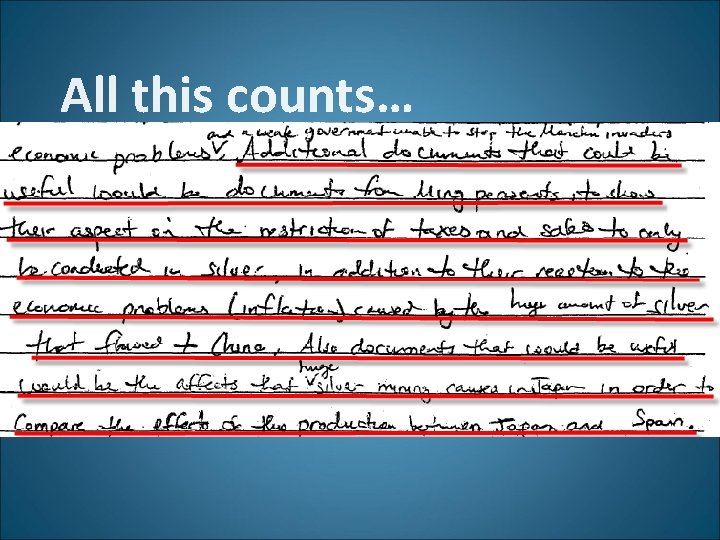 All this counts...
and a weak government unable to stop the Manchu invaders
economic problems. Additional documents that could be
useful would be documents from Ming peasents, to show
their aspect on the restriction of taxes and sales to only
be conducted in silver, in addition to their reaction to the
economic problems (inflation) caused by the huge amount of silver
that flowed to China. Also documents that would be useful
would be the affects that huge silver mining caused in Japan in order to
Compare the effects of this production between Japan and Spain.